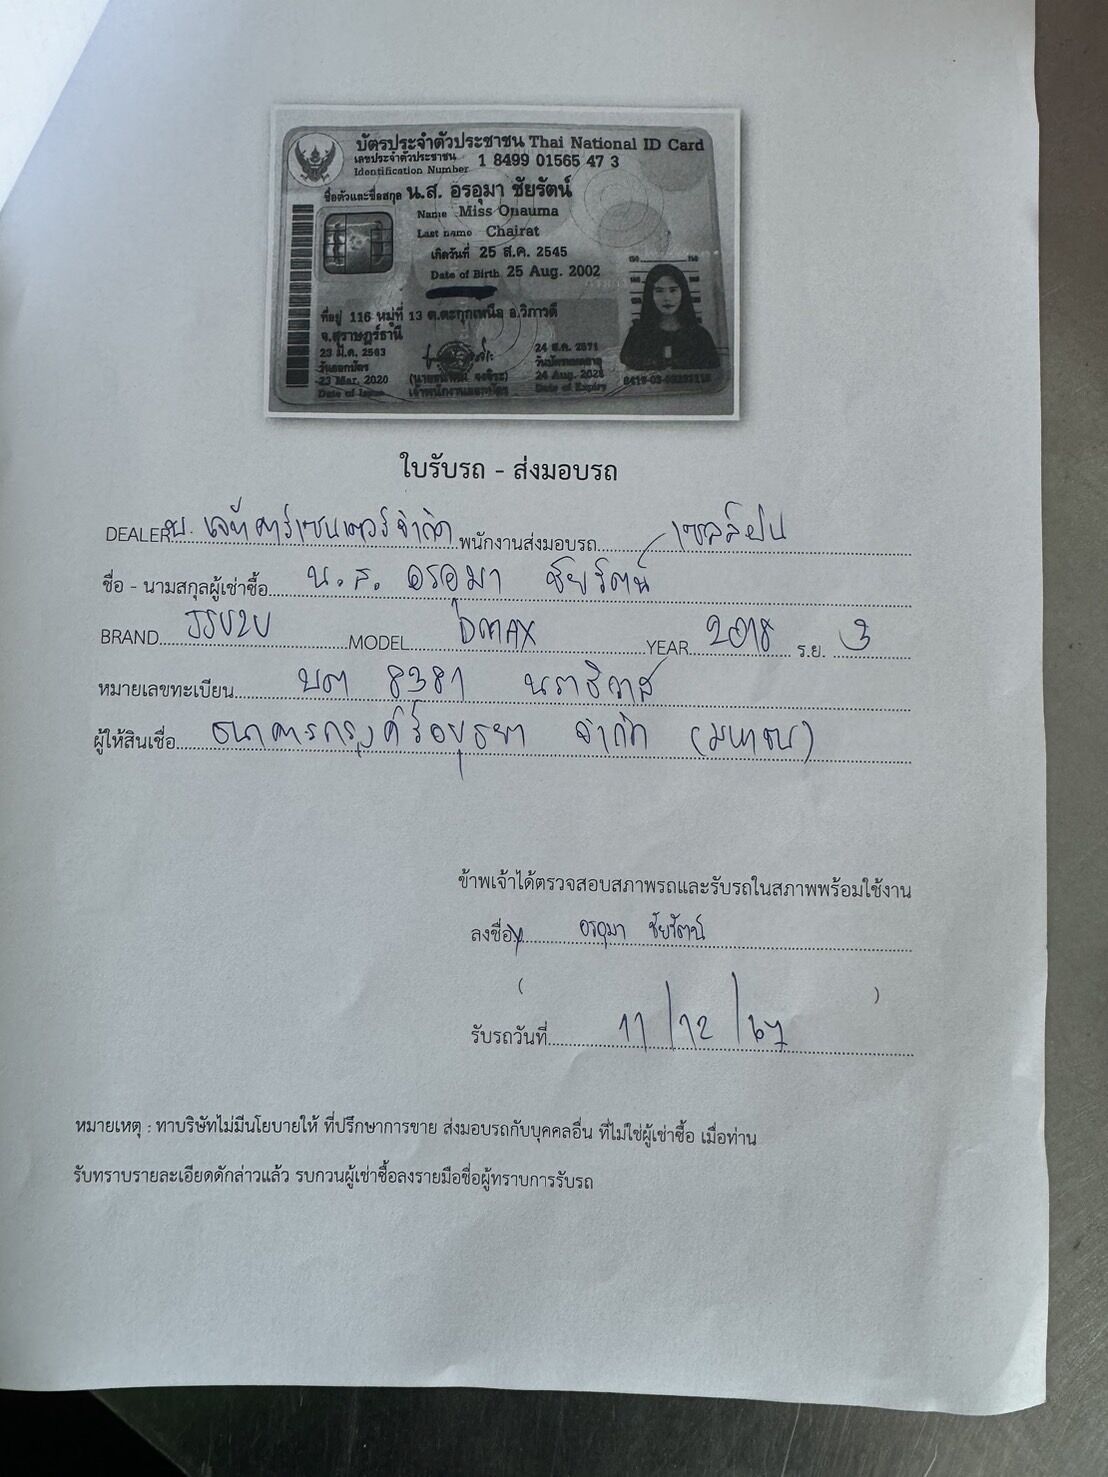 บัตรประจำตัวประชาชน Thai National ID Card
เลขประจำตัวประชาชน 1 8499 01565 47 3
Identification Number
ชื่อตัวและชื่อสกุล น.ส. อรอุมา ชัยรัตน์
Name Miss Onauma
Last name Chairat
เกิดวันที่ 25 ส.ค. 2545
Date of Birth 25 Aug. 2002
ที่อยู่ 116 หมู่ที่ 13 ต.ตะกุกเหนือ อ.วิภาวดี
จ.สุราษฎร์ธานี
23 มี.ค. 2563
วันออกบัตร
23 Mar. 2020
Date of Issue
เจ้าพนักงานออกบัตร
24 ส.ค. 2571
วันบัตรหมดอายุ
24 Aug. 2028
Date of Expiry
ใบรับรถ - ส่งมอบรถ
DEALER บ. เจท คาร์เซนเตอร์ จำกัด พนักงานส่งมอบรถ
ชื่อ - นามสกุลผู้เช่าซื้อ น.ส. อรอุมา ชัยรัตน์
BRAND ISUZU MODEL DMAX YEAR 2018 ร.ย. 3
หมายเลขทะเบียน บต 8381 นราธิวาส
ผู้ให้สินเชื่อ ธนาคารกรุงศรีอยุธยา จำกัด (มหาชน)
ข้าพเจ้าได้ตรวจสอบสภาพรถและรับรถในสภาพพร้อมใช้งาน
ลงชื่อ x อรอุมา ชัยรัตน์
( )
รับรถวันที่ 11/12/67
หมายเหตุ : ทาบริษัทไม่มีนโยบายให้ ที่ปรึกษาการขาย ส่งมอบรถกับบุคคลอื่น ที่ไม่ใช่ผู้เช่าซื้อ เมื่อท่าน
รับทราบรายละเอียดดักล่าวแล้ว รบกวนผู้เช่าซื้อลงรายมือชื่อผู้ทราบการรับรถ